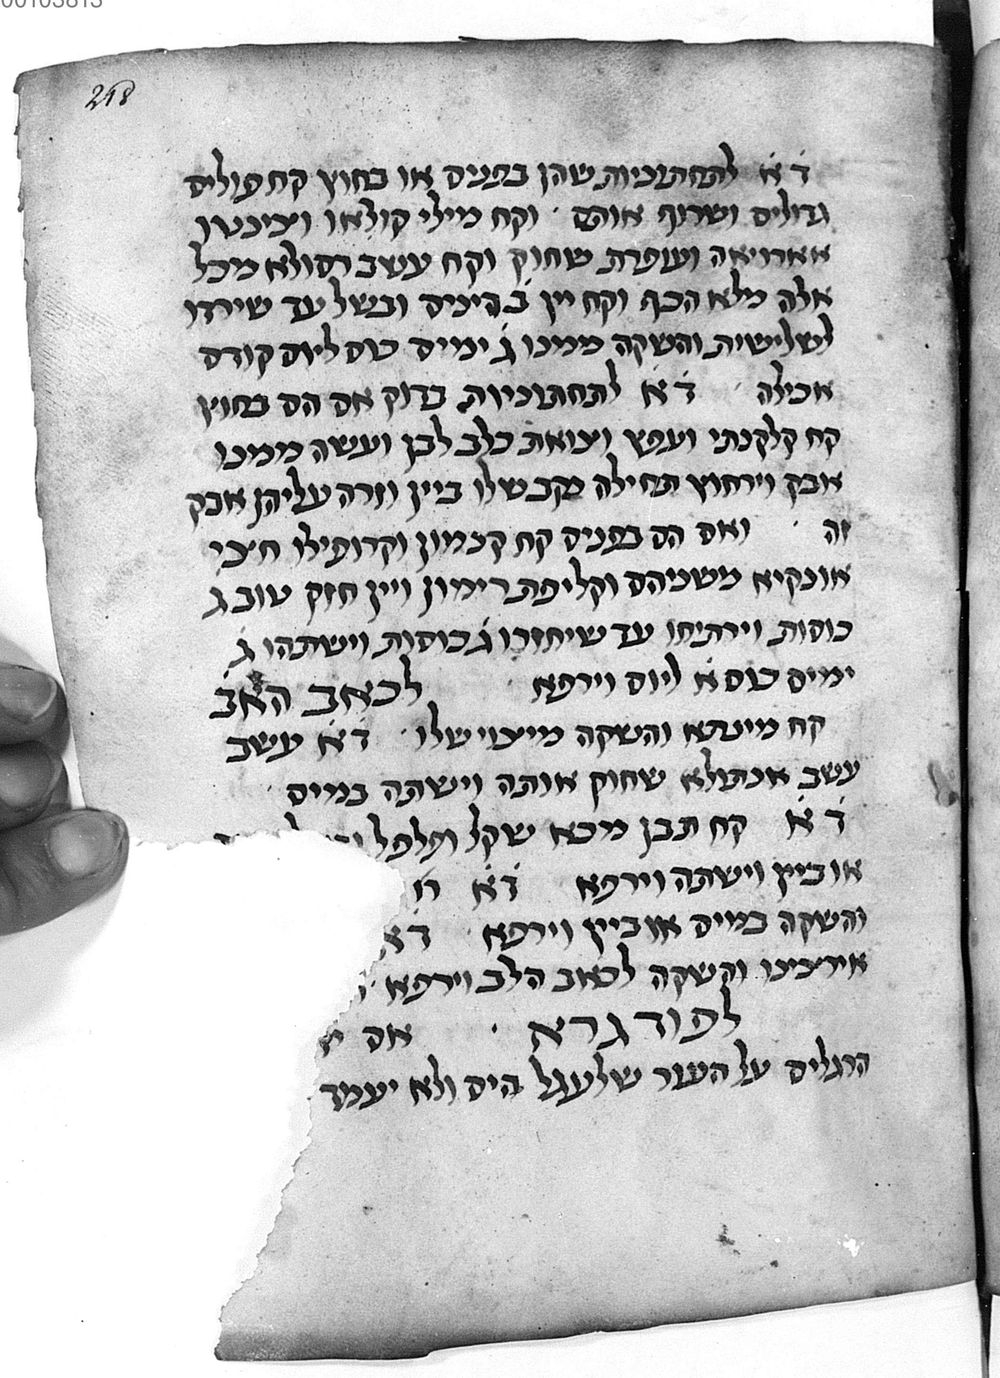 00103813
218
ד̇ א̇ לתחתוניות שהן בפנים או בחוץ קח פולים
גדולים ושרוף אותם וקח מילי קולאו
ועופרת שחוק וקח עשב רסולא מכל
אלה מלא הכף וקח יין ב̇ בשל עד שירדו
לשלישית והשקה ממנו ג̇ ימים כוס ליום קודם
אכילה ד̇ א̇ לתחתוניות בדוק אם הם בחוץ
קח קלקנתי ועפץ וצואת כלב לבן ועשה ממנו
אבק וירחוץ תחילה מקבשלו ביין וזרה עליהן אבק
זה ואם הם בפנים קח קנמון וקרופילו חצי
אונקיא משניהם וקליפת רימון ויין חזק טוב ג̇
כוסות וירתיחו עד שיחזרו ג̇ כוסות וישתהו ג̇
ימים כוס א̇ ליום וירפא לכאב הלב
קח מינטא והשקה מיצוי שלו ד̇ א̇ עשב
עשב אנתולא שחוק אותה וישתה במים
ד̇ א̇ קח תבן מכא שקל ופלפל
או ביין וישתה וירפא ד̇ א̇
והשקה במים או ביין וירפא ד̇ א̇
והשקה לכאב הלב וירפא
לפודגרא אם
הרגלים על העור שלעגל הים ולא יעמד